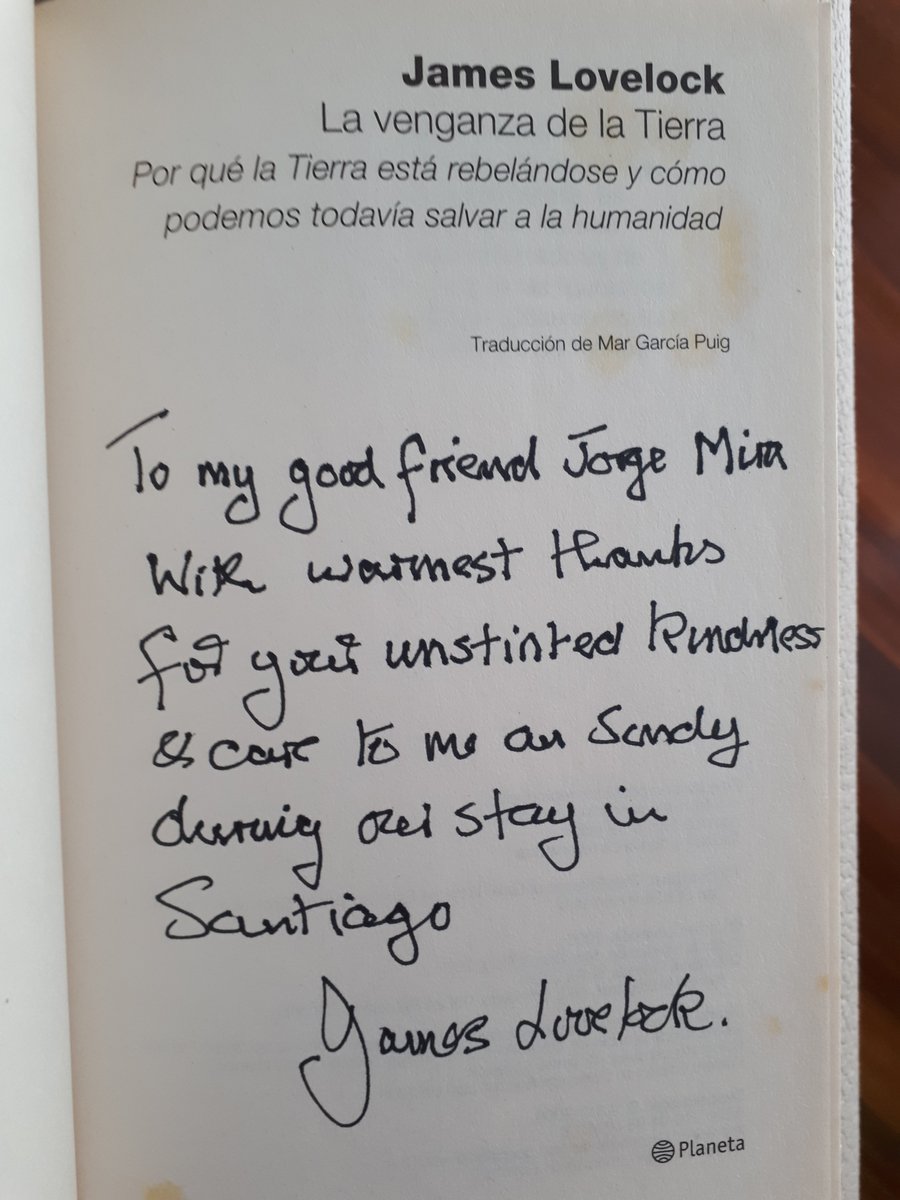 James Lovelock
La venganza de la Tierra
Por qué la Tierra está rebelándose y cómo
podemos todavía salvar a la humanidad
Traducción de Mar García Puig
To my good friend Jorge Mira
With warmest thanks
for your unstinted kindness
& care to me an Sandy
during our stay in
Santiago
James Lovelock.
Planeta